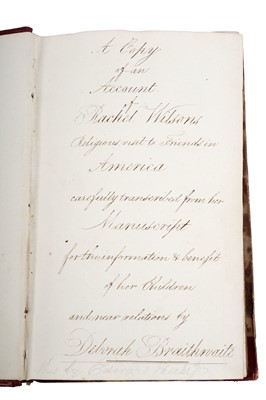 A Copy
of an
Account
of
Rachel Wilsons
Religious visit to Friends in
America
carefully transcribed from her
Manuscript
for the information & benefit
of her Children
and near relations by
Deborah Braithwaite